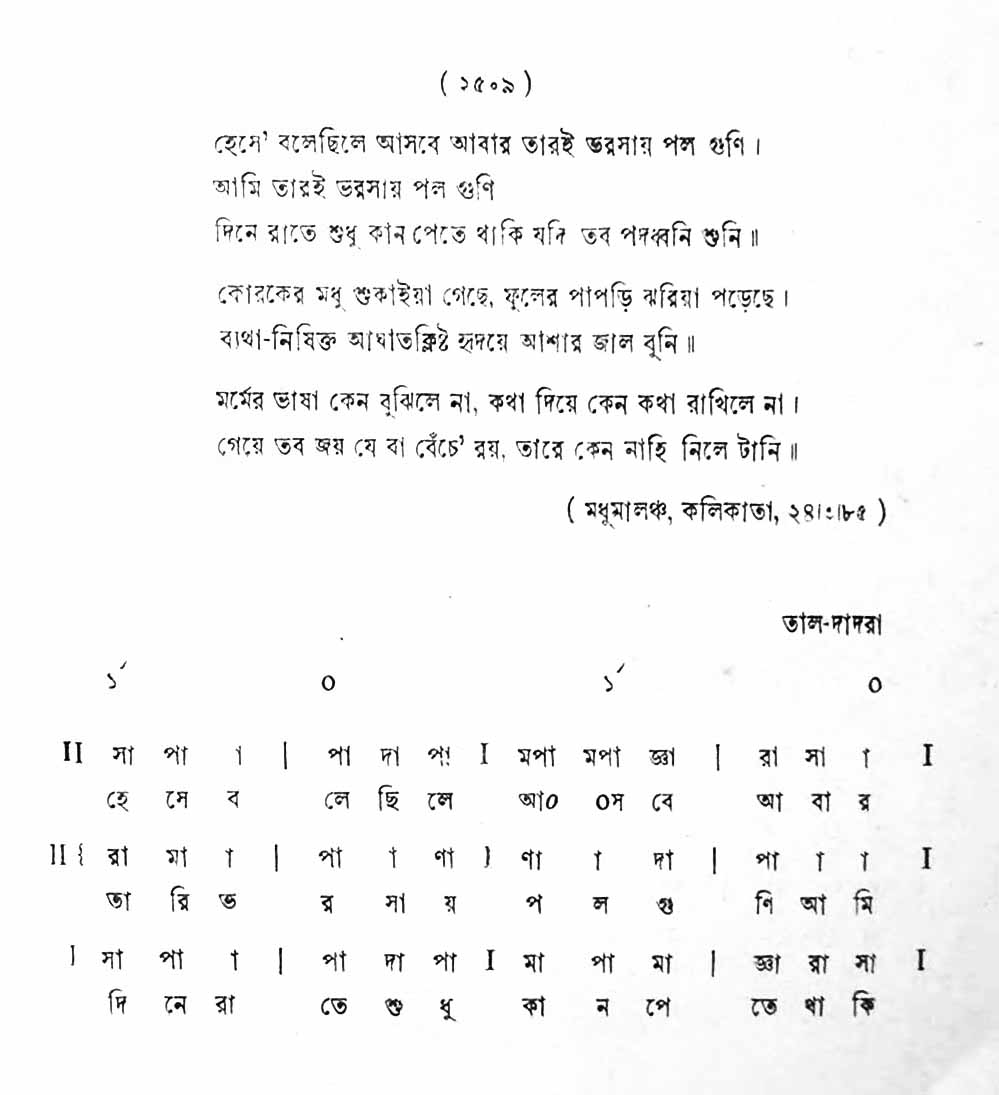 ( ২৫০৯ )
হেসে' বলেছিলে আসবে আবার তারই ভরসায় পল গুণি ।
আমি তারই ভরসায় পল গুণি
দিনে রাতে শুধু কান পেতে থাকি যদি তব পদধ্বনি শুনি ॥
কোরকের মধু শুকাইয়া গেছে, ফুলের পাপড়ি ঝরিয়া পড়েছে ।
ব্যথা-নিষিক্ত আঘাতক্লিষ্ট হৃদয়ে আশার জাল বুনি ॥
মর্মের ভাষা কেন বুঝিলে না, কথা দিয়ে কেন কথা রাখিলে না ।
গেয়ে তব জয় যে বা বেঁচে' রয়, তারে কেন নাহি নিলে টানি ॥
( মধুমালঞ্চ, কলিকাতা,
তাল-দাদরা
১´ ০ ১´ ০
II সা পা া | পা দা পা I মপা মপা জ্ঞা | রা সা া I
হে সে ব লে ছি লে আ০ ০স বে আ বা র
II { রা মা া | পা া ণা } ণা া দা | পা া া I
তা রি ভ র সা য় প ল গু ণি আ মি
I সা পা া | পা দা পা I মা পা মা | জ্ঞা রা সা I
দি নে রা তে শু ধু কা ন পে তে থা কি